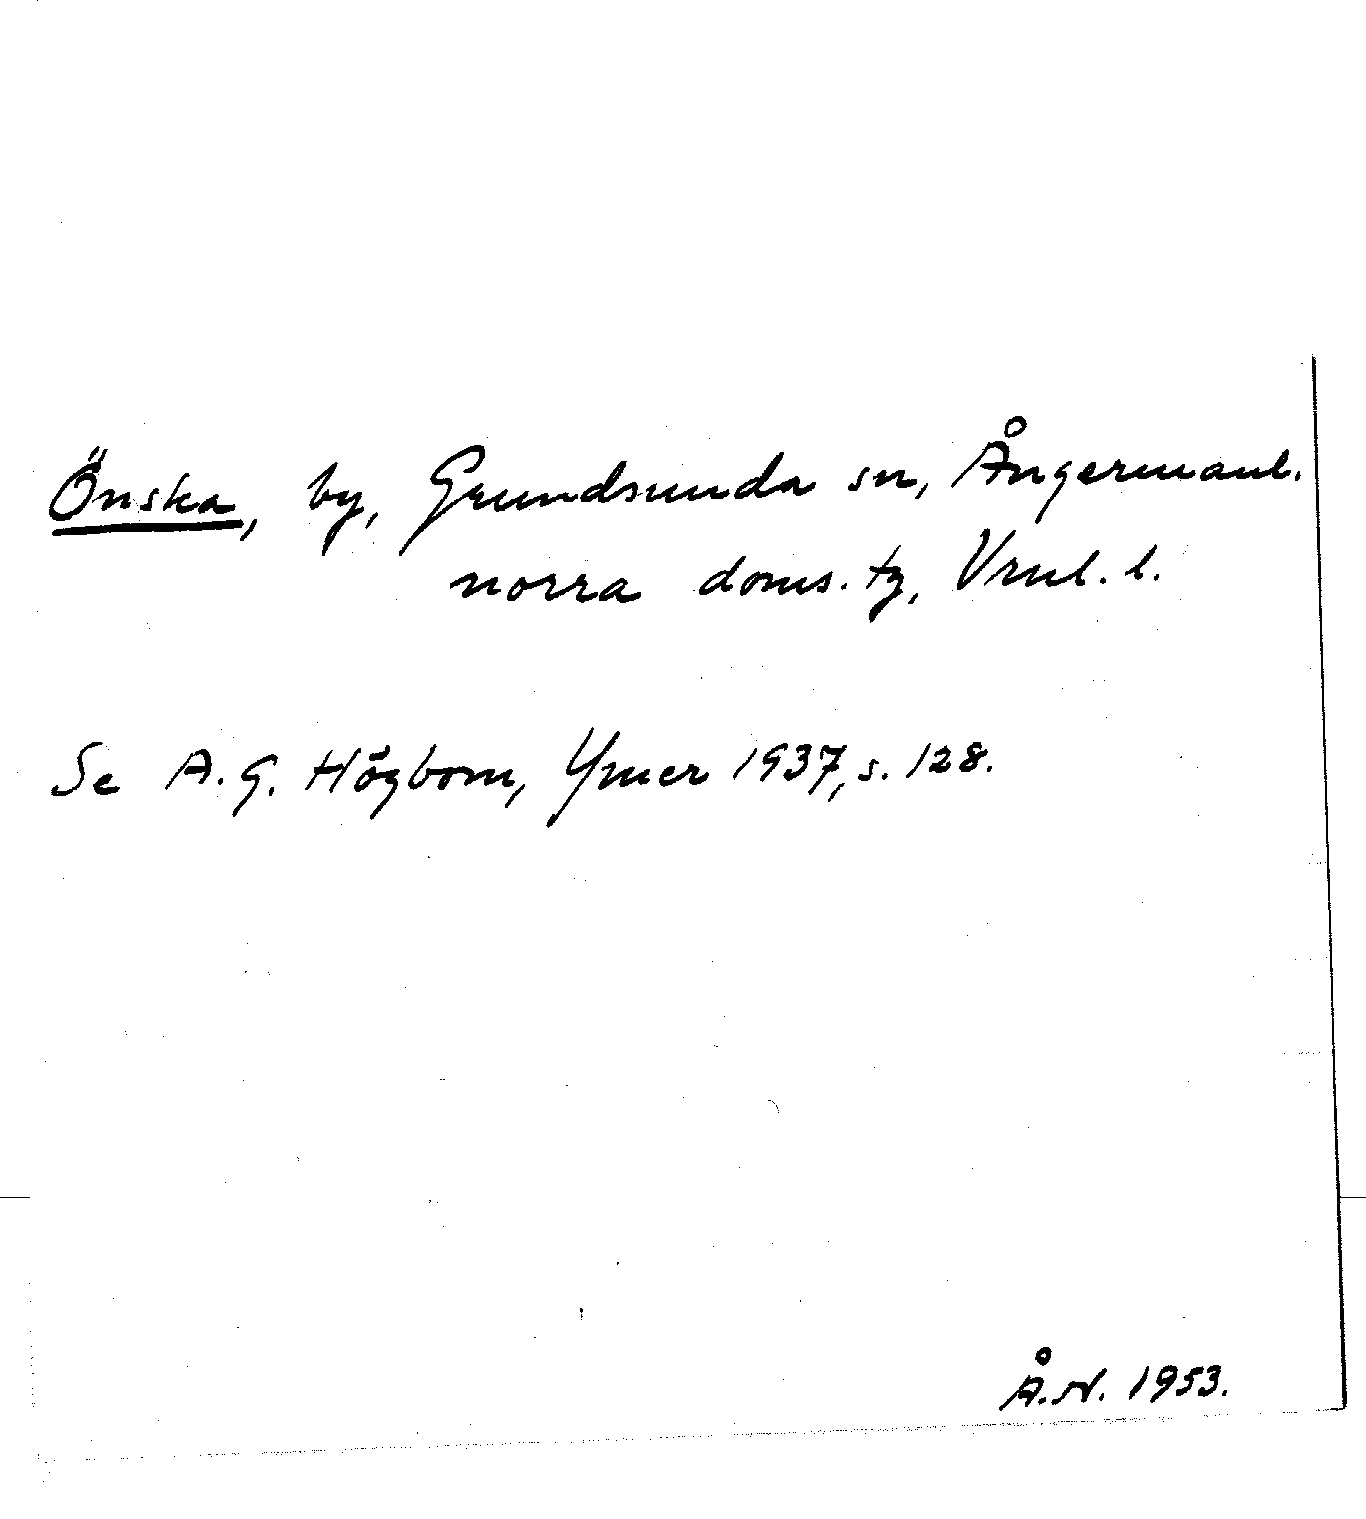 Önska, by, Grundsunda sn, Ångermanl.
norra doms. tg, Vrnl. l.
Se A. G. Högbom, Ymer 1937, s. 128.
Å. N. 1953.